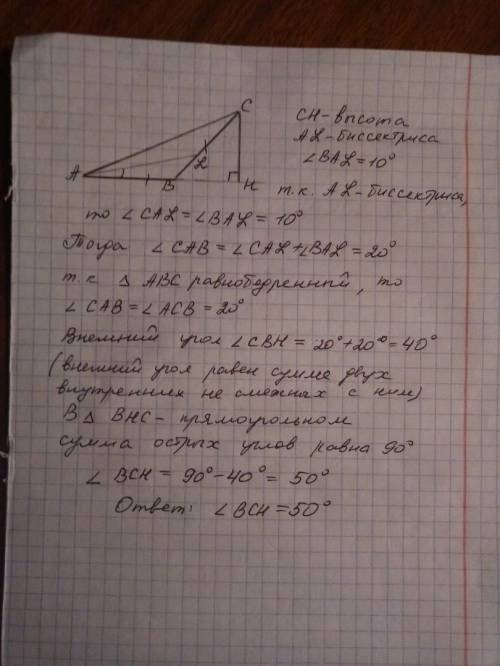 C
A
B
L
H
CH - высота
AL - биссектриса
∠BAL = 10°
т.к. AL - биссектриса,
то ∠CAL = ∠BAL = 10°
Тогда ∠CAB = ∠CAL + ∠BAL = 20°
т.к. △ ABC равнобедренный, то
∠CAB = ∠ACB = 20°
Внешний угол ∠CBH = 20° + 20° = 40°
(внешний угол равен сумме двух
внутренних не смежных с ним)
В △ BHC - прямоугольном
сумма острых углов равна 90°
∠ BCH = 90° - 40° = 50°
Ответ: ∠BCH = 50°